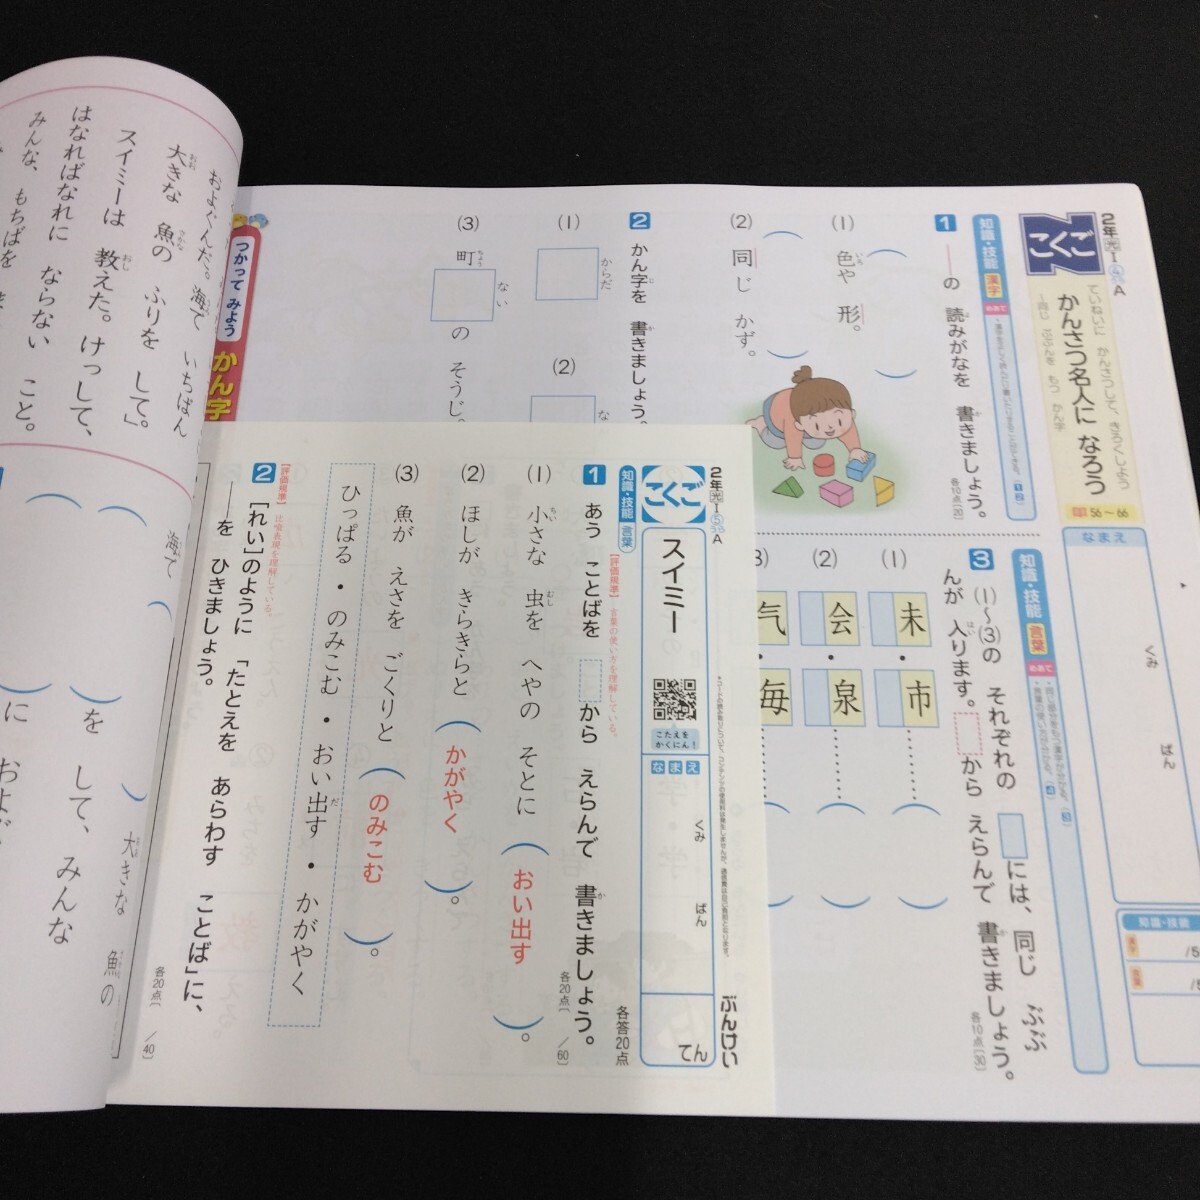 2年 光 I A
こくご
ていねいに かんさつして、きろくしよう
かんさつ名人に なろう
―同じ ぶぶんを もつ かん字
56～66
なまえ
くみ
ばん
知識・技能
漢字
言葉
知識・技能 漢字
めあて
1 ――の 読みがなを 書きましょう。
各10点〔20〕
(1) 色や 形。
(2) 同じ かず。
2 かん字を 書きましょう。
(1) からだ
(2)
(3) 町 ない の そうじ。
知識・技能 言葉
めあて
3 (1)～(3)の それぞれの には、同じ ぶぶ
んが 入ります。 から えらんで 書きましょう。
各10点〔30〕
(1) 未・市
(2) 会・泉
(3) 气・毎
2年 光 I A
こくご
スイミー
こたえを
かくにん!
なまえ
くみ
ばん
てん
ぶんけい
知識・技能 言葉
【評価規準】言葉の使い方を理解している。
各答20点
1 あう ことばを から えらんで 書きましょう。
各20点〔/60〕
(1) 小さな 虫を へやの そとに (おい出す)。
(2) ほしが きらきらと (かがやく)。
(3) 魚が えさを ごくりと (のみこむ)。
ひっぱる・のみこむ・おい出す・かがやく
【評価規準】比喩表現を理解している。
2 [れい]のように 「たとえを あらわす ことば」に、
――を ひきましょう。
各20点〔/40〕
つかって みよう
かん字
およぐんだ。海で いちばん
大きな 魚の ふりを して」
スイミーは 教えた。けっして、
はなればなれに ならない こと。
みんな、もちばを
海で
大きな 魚の
を して、みんな
に およ